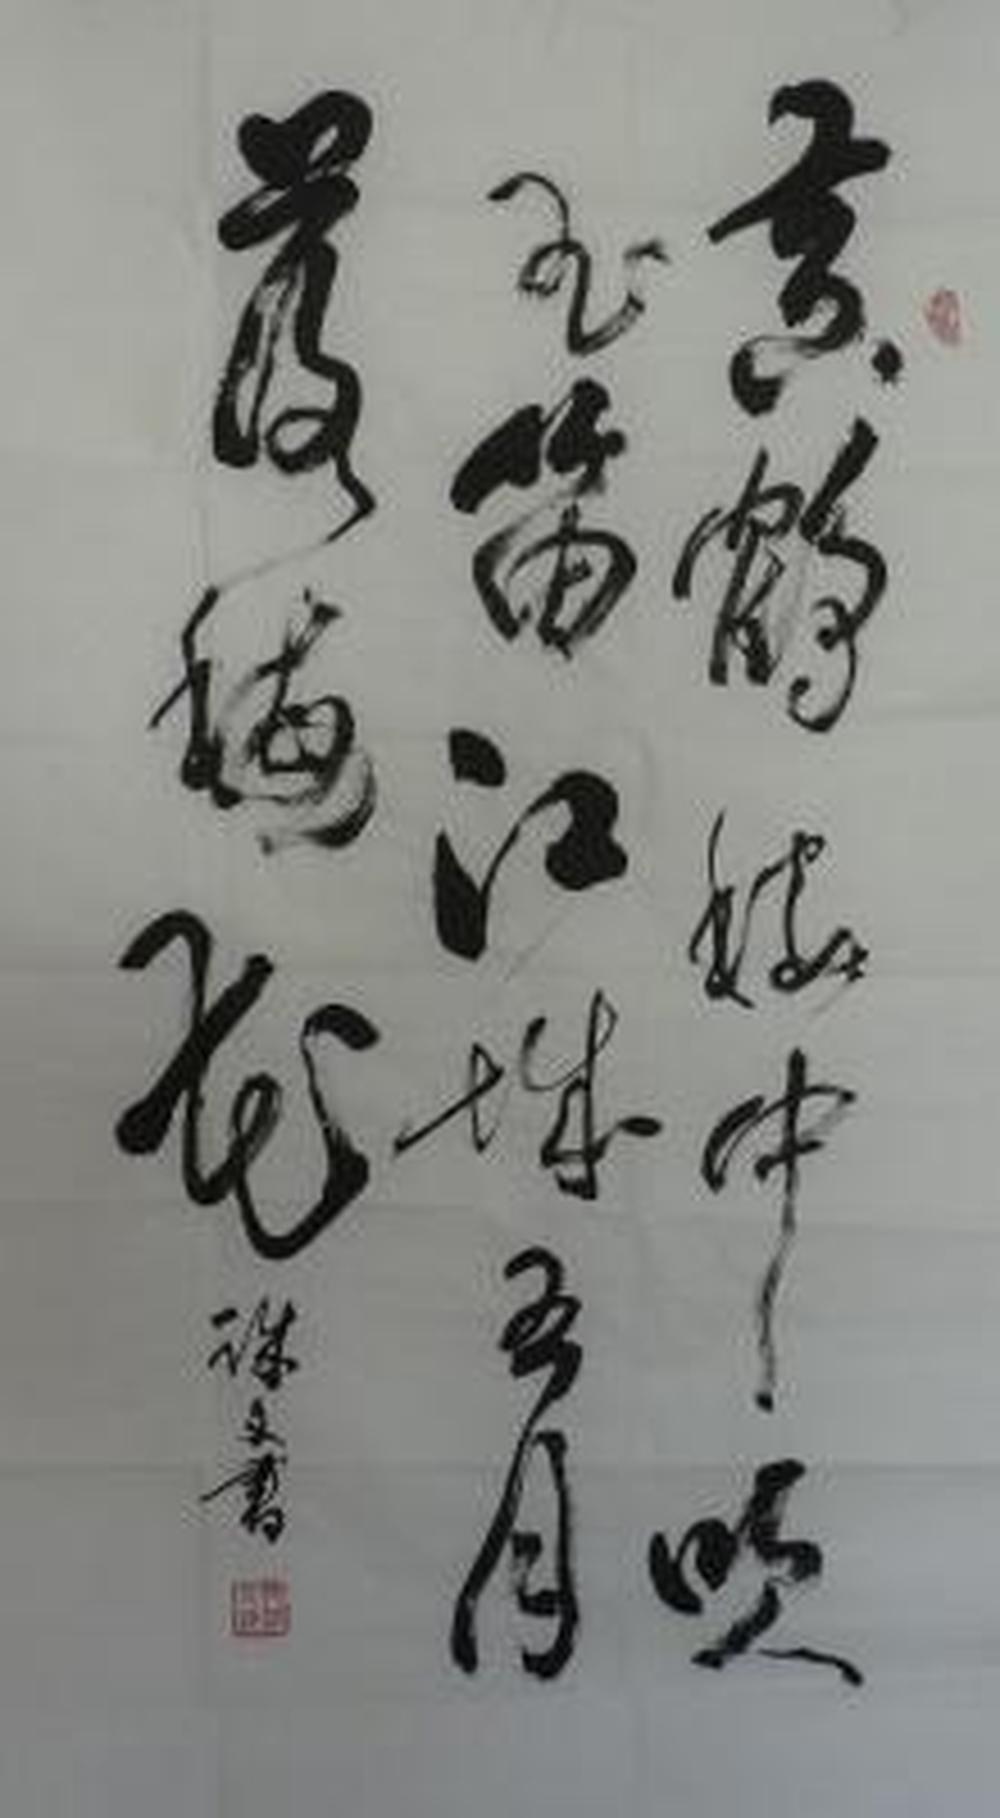 黄鹤楼中吹
玉笛江城五月
落梅花
文书